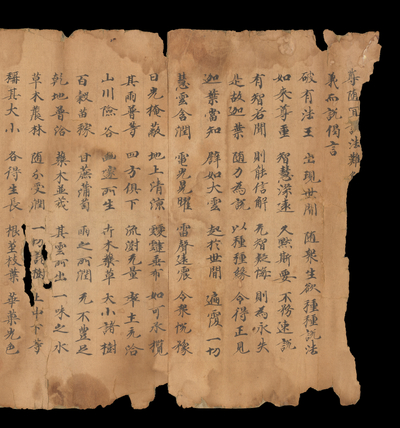 尊隨宜說法難
義而說偈言
破有法王 出現世間 隨衆生欲 種種說法
如来尊重 智慧深遠 久默斯要 不務速說
有智若聞 則能信解 无智疑悔 則為永失
是故迦葉 隨力為說 以種種緣 令得正見
迦葉當知 辟如大雲 起於世間 遍覆一切
慧雲含潤 電光晃曜 雷聲遠震 令衆悅豫
日光掩蔽 地上清涼 靉靆垂布 如可承攬
其雨普等 四方俱下 流澍无量 率土充洽
山川險谷 幽邃所生 卉木藥草 大小諸樹
百穀苗稼 甘蔗蒲萄 雨之所潤 无不豊足
乾地普洽 藥木並茂 其雲所出 一味之水
草木叢林 隨分受潤 一切諸樹 上中下等
稱其大小 各得生長 根莖枝葉 華菓光色